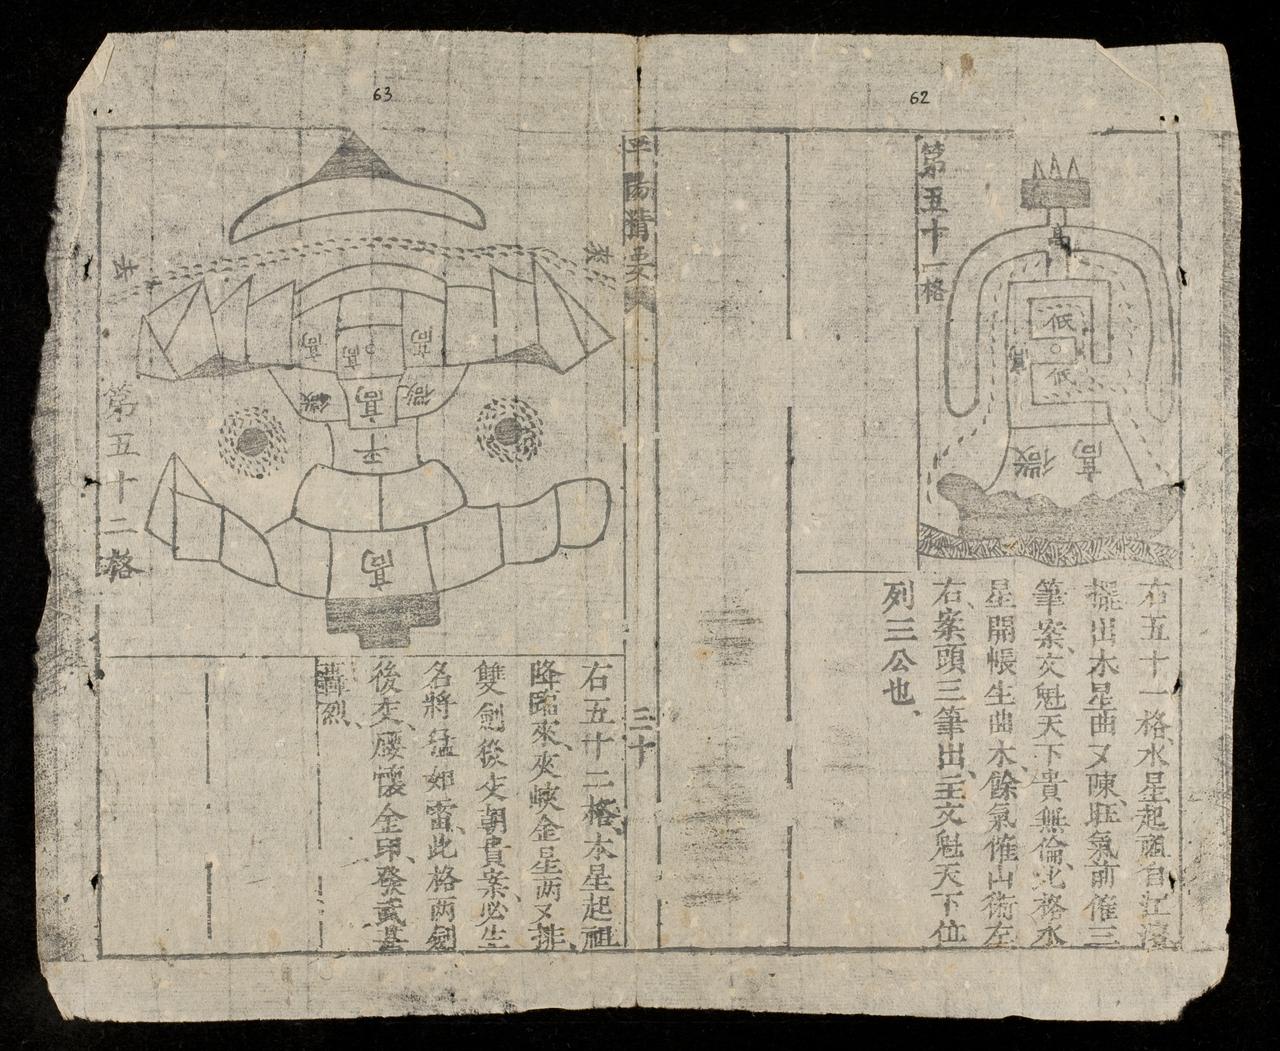 62
第五十一格
高
低
低
高
微
右五十一格、水星起祖自江邊
擺出木星曲又陳、旺氣前催三
筆案、文魁天下貴無倫、此格水
星開帳生曲木、餘氣催山術左
右、案頭三筆出、主文魁天下位
列三公也、
平陽精要
三十
63
來
去
高
高
高
微
高
微
平
高
第五十二格
右五十二格、木星起祖
降臨來、夾峽金星两又排、
雙劍後交朝貴案、必生
名將猛如雷、此格两劍
後交、腰懷金印、發武甚
轟烈、